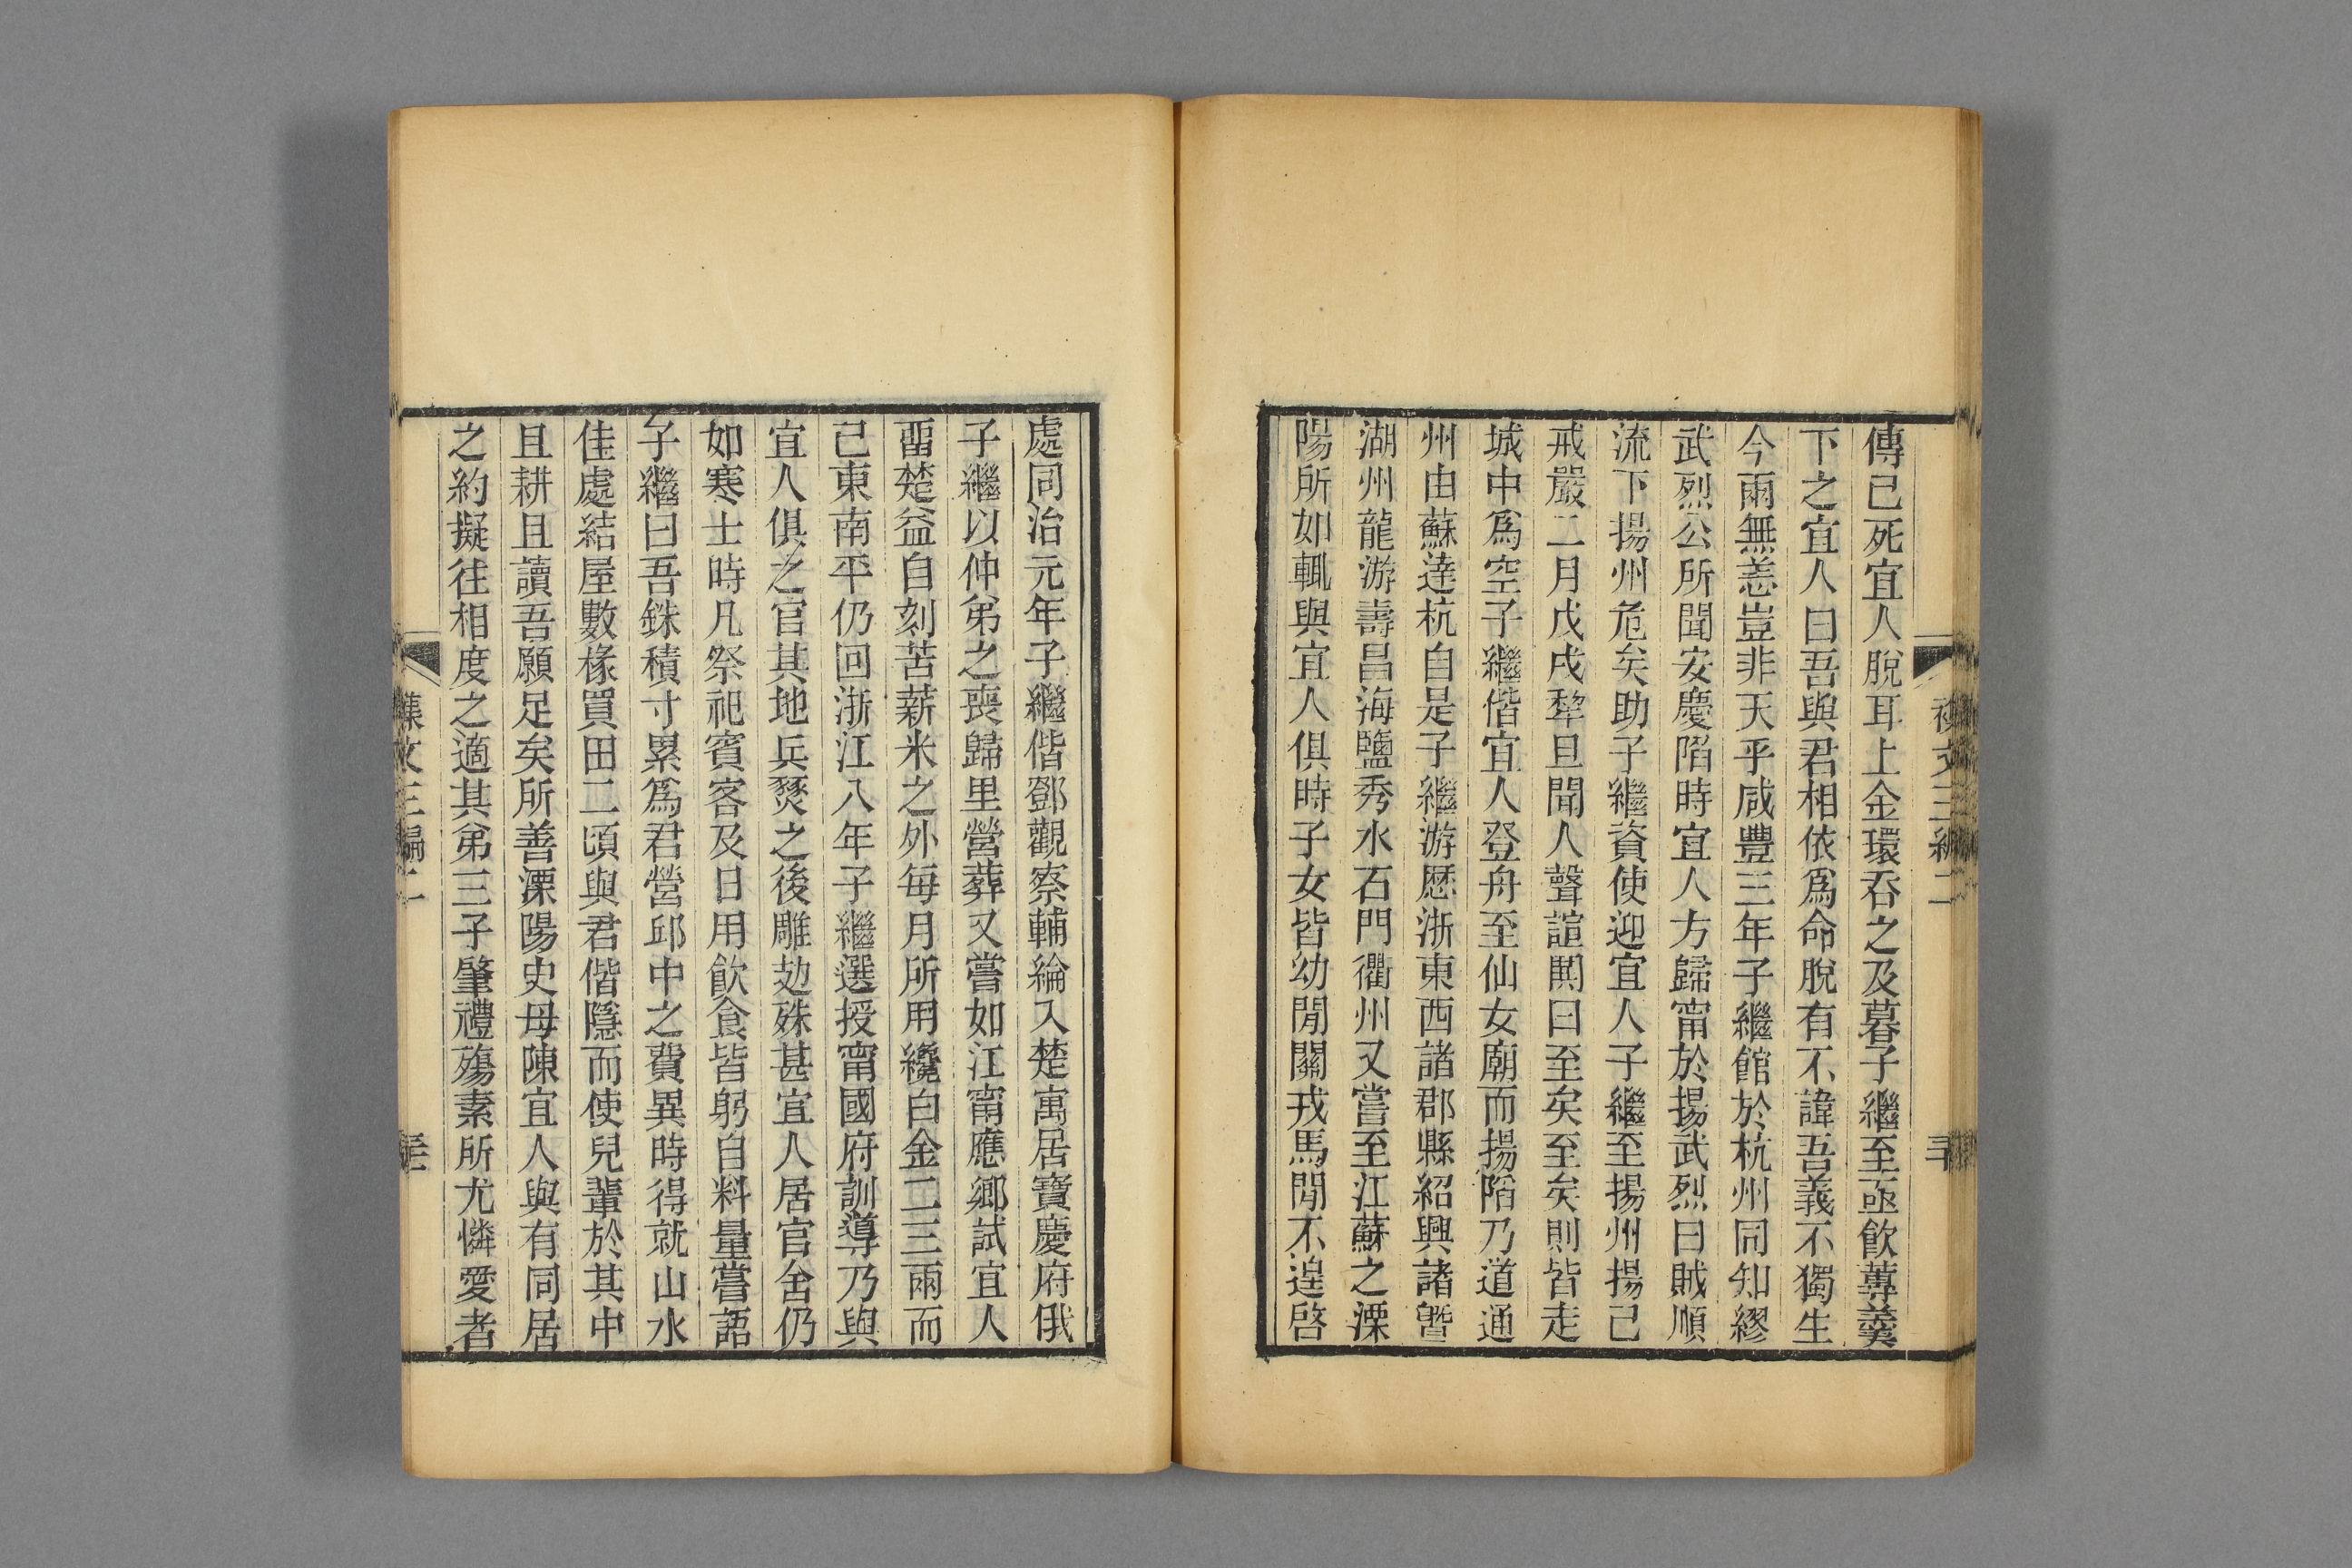 傳己死宜人脫耳上金環吞之及暮子繼至亟飲蓴羹
下之宜人曰吾與君相依爲命脫有不諱吾義不獨生
今雨無恙豈非天乎咸豐三年子繼館於杭州同知繆
武烈公所聞安慶陷時宜人方歸甯於揚武烈曰賊順
流下揚州危矣助子繼資使迎宜人子繼至揚州揚己
戒嚴二月戊戌犂旦聞人聲諠鬨曰至矣至矣則皆走
城中爲空子繼偕宜人登舟至仙女廟而揚陷乃道通
州由蘇達杭自是子繼游歷浙東西諸郡縣紹興諸曁
湖州龍游壽昌海鹽秀水石門衢州又嘗至江蘇之溧
陽所如輒與宜人俱時子女皆幼閒關戎馬閒不遑啓
處同治元年子繼偕鄧觀察輔綸入楚寓居寶慶府俄
子繼以仲弟之喪歸里營葬又嘗如江甯應鄉試宜人
畱楚益自刻苦薪米之外每月所用纔白金二三兩而
己東南平仍回浙江八年子繼選授甯國府訓導乃與
宜人俱之官其地兵燹之後雕攰殊甚宜人居官舍仍
如寒士時凡祭祀賓客及日用飮食皆躬自料量嘗語
子繼曰吾銖積寸累爲君營邱中之費異時得就山水
佳處結屋數椽買田二頃與君偕隱而使兒輩於其中
且耕且讀吾願足矣所善溧陽史母陳宜人與有同居
之約擬往相度之適其弟三子肇禮殤素所尤憐愛者